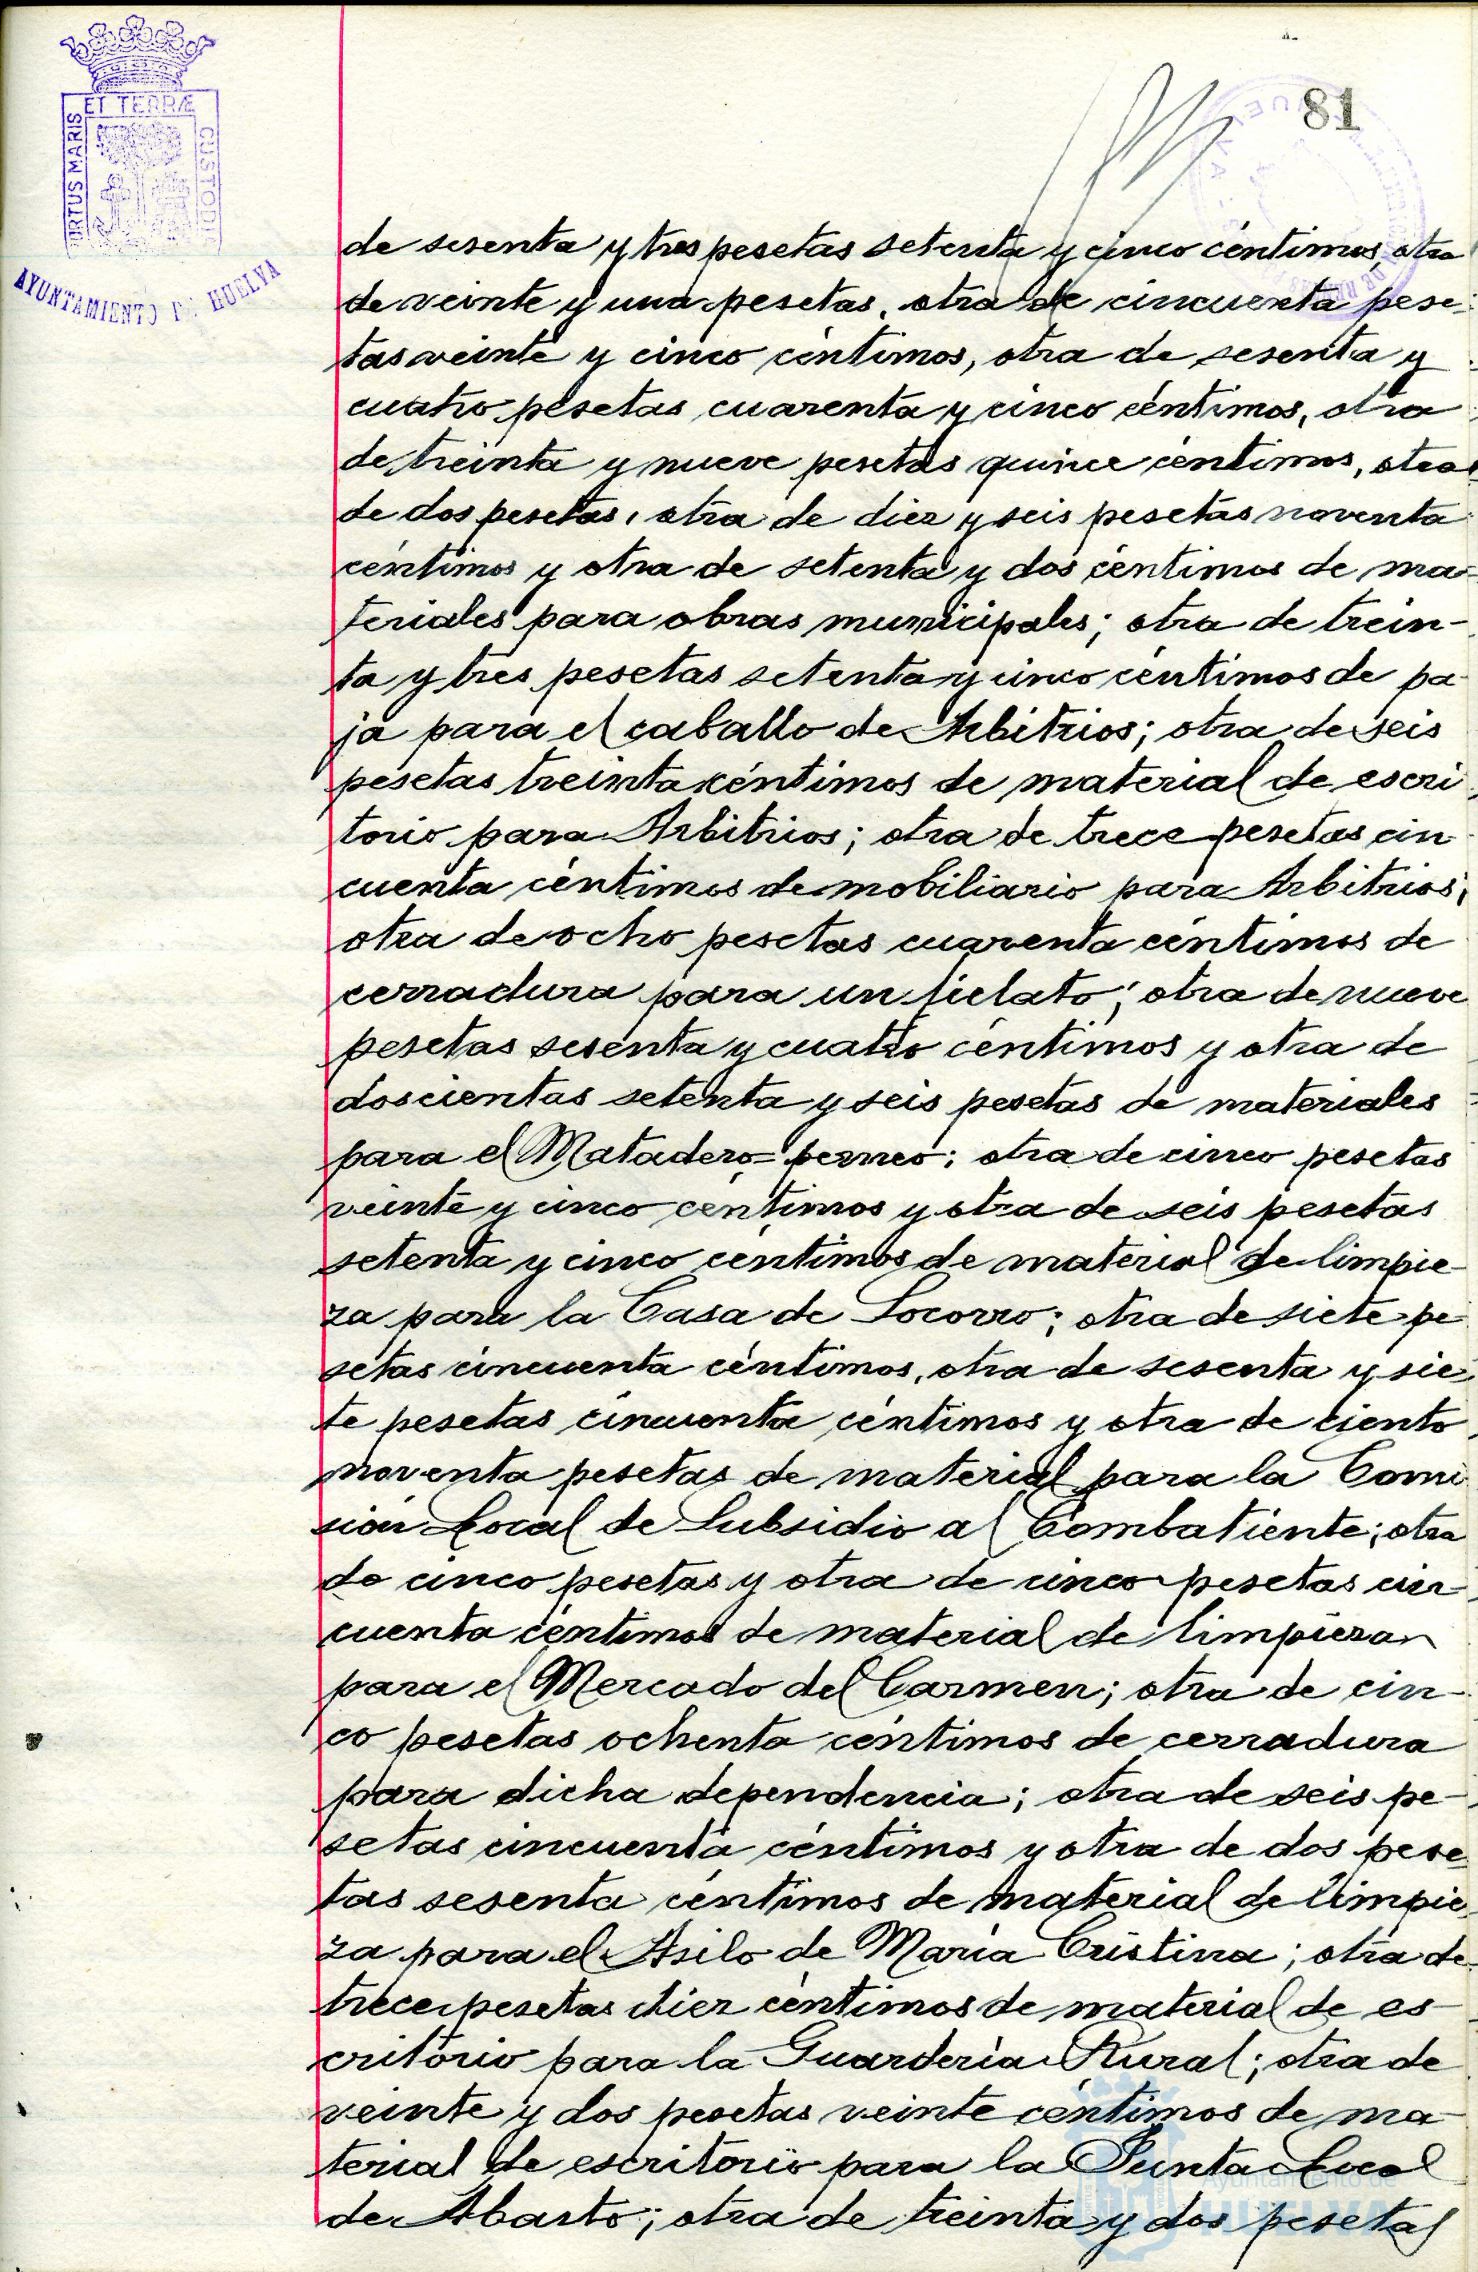 81
ET TERRÆ
PORTUS MARIS
CUSTODIA
AYUNTAMIENTO DE HUELVA
de sesenta y tres pesetas setenta y cinco céntimos, otra
de veinte y una pesetas, otra de cincuenta pese-
tas veinte y cinco céntimos, otra de sesenta y
cuatro pesetas cuarenta y cinco céntimos, otra
de treinta y nueve pesetas quince céntimos, otra
de dos pesetas, otra de diez y seis pesetas noventa
céntimos y otra de setenta y dos céntimos de ma-
teriales para obras municipales; otra de trein-
ta y tres pesetas setenta y cinco céntimos de pa-
ja para el caballo de Arbitrios; otra de seis
pesetas treinta céntimos de material de escri
torio para Arbitrios; otra de trece pesetas cin
cuenta céntimos de mobiliario para Arbitrios;
otra de ocho pesetas cuarenta céntimos de
cerradura para un fielato; otra de nueve
pesetas sesenta y cuatro céntimos y otra de
doscientas setenta y seis pesetas de materiales
para el Matadero perneo; otra de cinco pesetas
veinte y cinco céntimos y otra de seis pesetas
setenta y cinco céntimos de material de limpie-
za para la Casa de Socorro; otra de siete pe
setas cincuenta céntimos, otra de sesenta y sie-
te pesetas cincuenta céntimos y otra de ciento
noventa pesetas de material para la Comi
sión Local de Subsidio al Combatiente; otra
de cinco pesetas y otra de cinco pesetas cin-
cuenta céntimos de material de limpieza
para el Mercado del Carmen; otra de cin-
co pesetas ochenta céntimos de cerradura
para dicha dependencia; otra de seis pe-
setas cincuenta céntimos y otra de dos pese
tas sesenta céntimos de material de limpie-
za para el Asilo de María Cristina; otra de
trece pesetas diez céntimos de material de es-
critorio para la Guardería Rural; otra de
veinte y dos pesetas veinte céntimos de ma-
terial de escritorio para la Junta Local
de Abasto; otra de treinta y dos pesetas
Ayuntamiento de
HUELVA